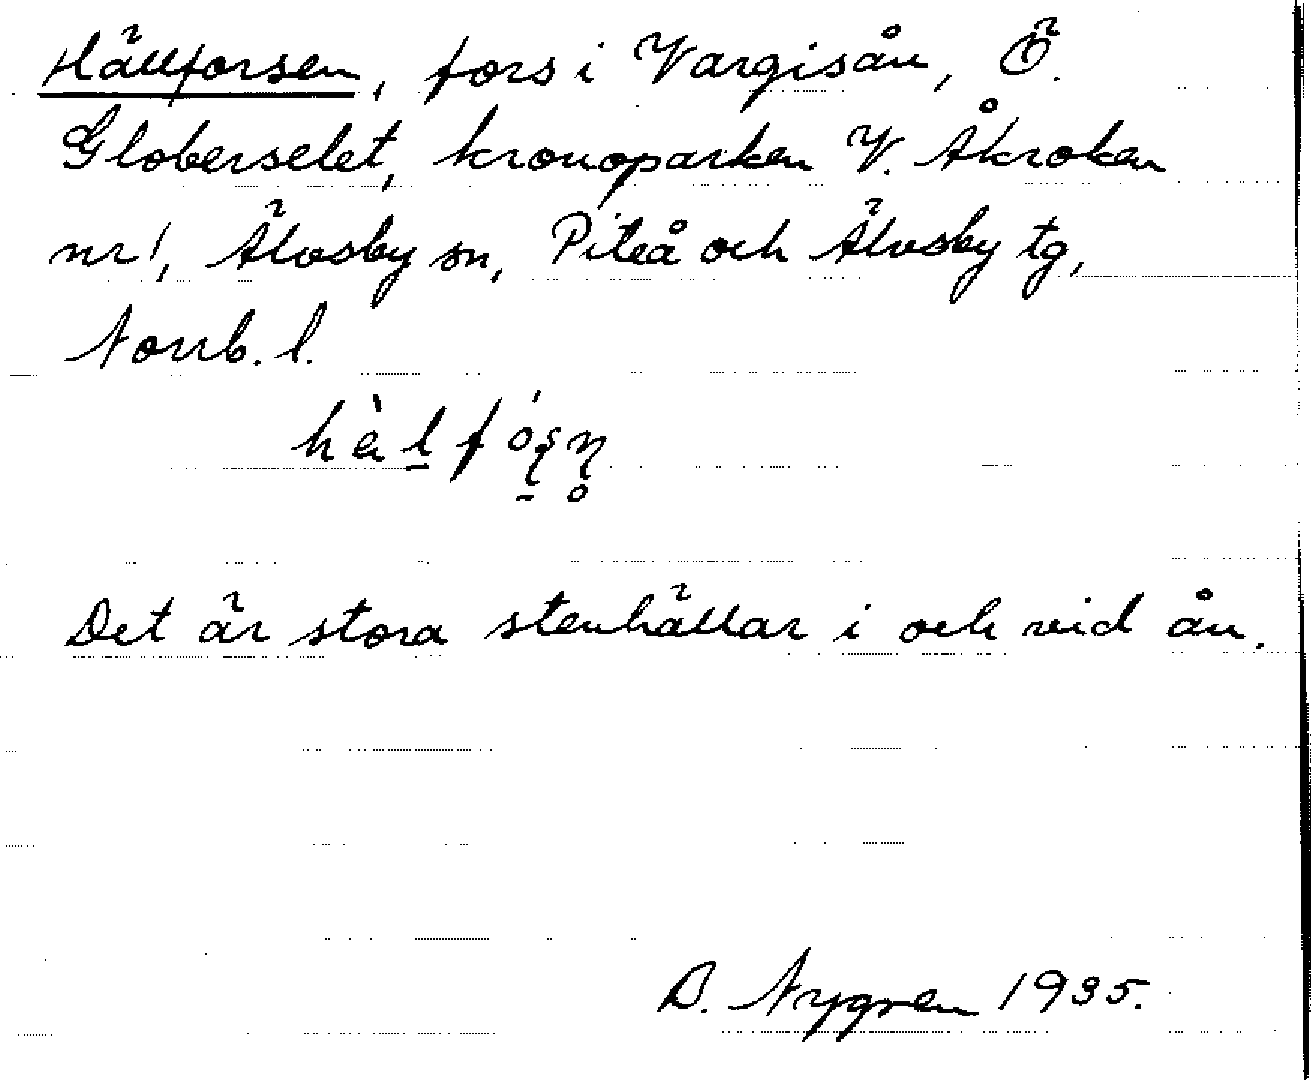 Hällforsen, fors i Vargisån, Ö.
Globerselet, kronoparken V. Åkroken
nr 1, Älvsby sn, Piteå och Älvsby tg,
Norrb. l.
Det är stora stenhällar i och vid ån.
D. Nygren 1935.